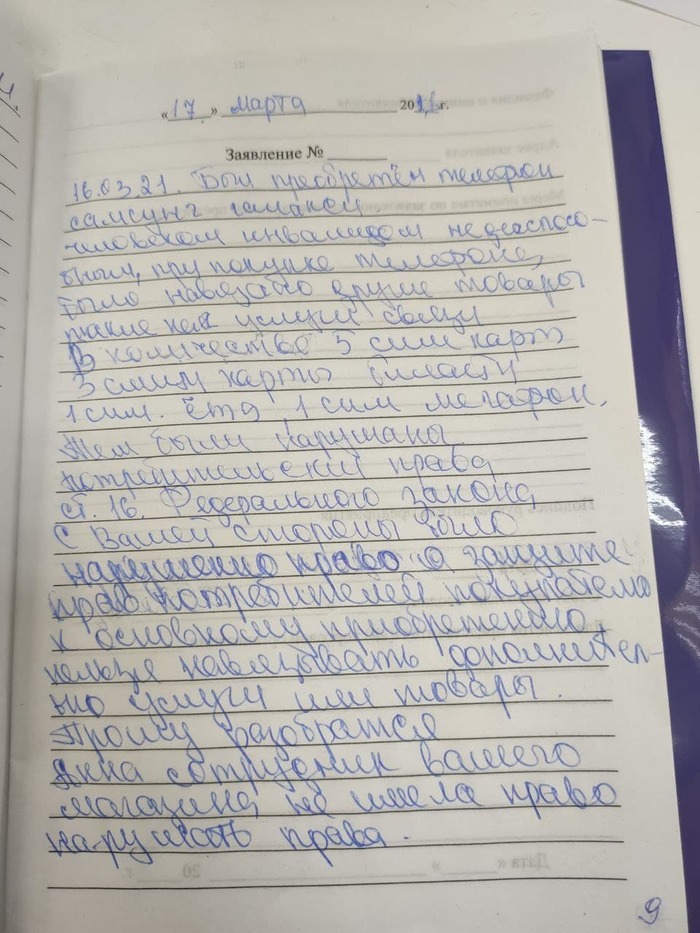 «17.» марта 2021 г.
Заявление № ______
16.03.21. Был преобретён телефон
самсунг галакси.
человеком инвалидом недеоспосо-
бным, при покупке телефоне,
было навезабо другие товары
такие как услуги связи
В количестве 5 сим карт
3 симм карты билаети
1 сим. ётa 1 сим мегафон.
Тем были нарушаны
потребительский права
ст. 16. Федерального закона
С вашей стороны было
нарушенно право о защите
прав потребителей покупателю
к основному приобретению
нельзя навязывать дополнител-
ьно услуги или товары.
Прошу разобратся
Анна сотрудник вашего
магазина, не имела право
нарушать права.
9